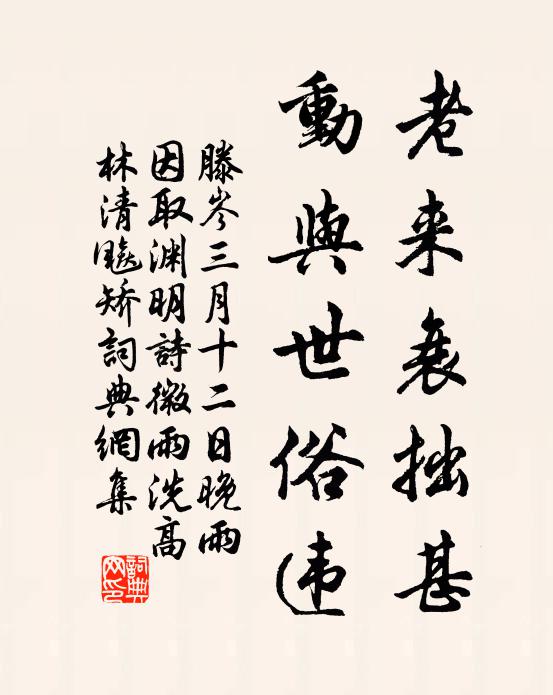 老来衰拙甚
動與世俗违
滕岑三月十二日晚雨
因取渊明詩微雨洗高
林清飈矫詞典網集
詞典网印